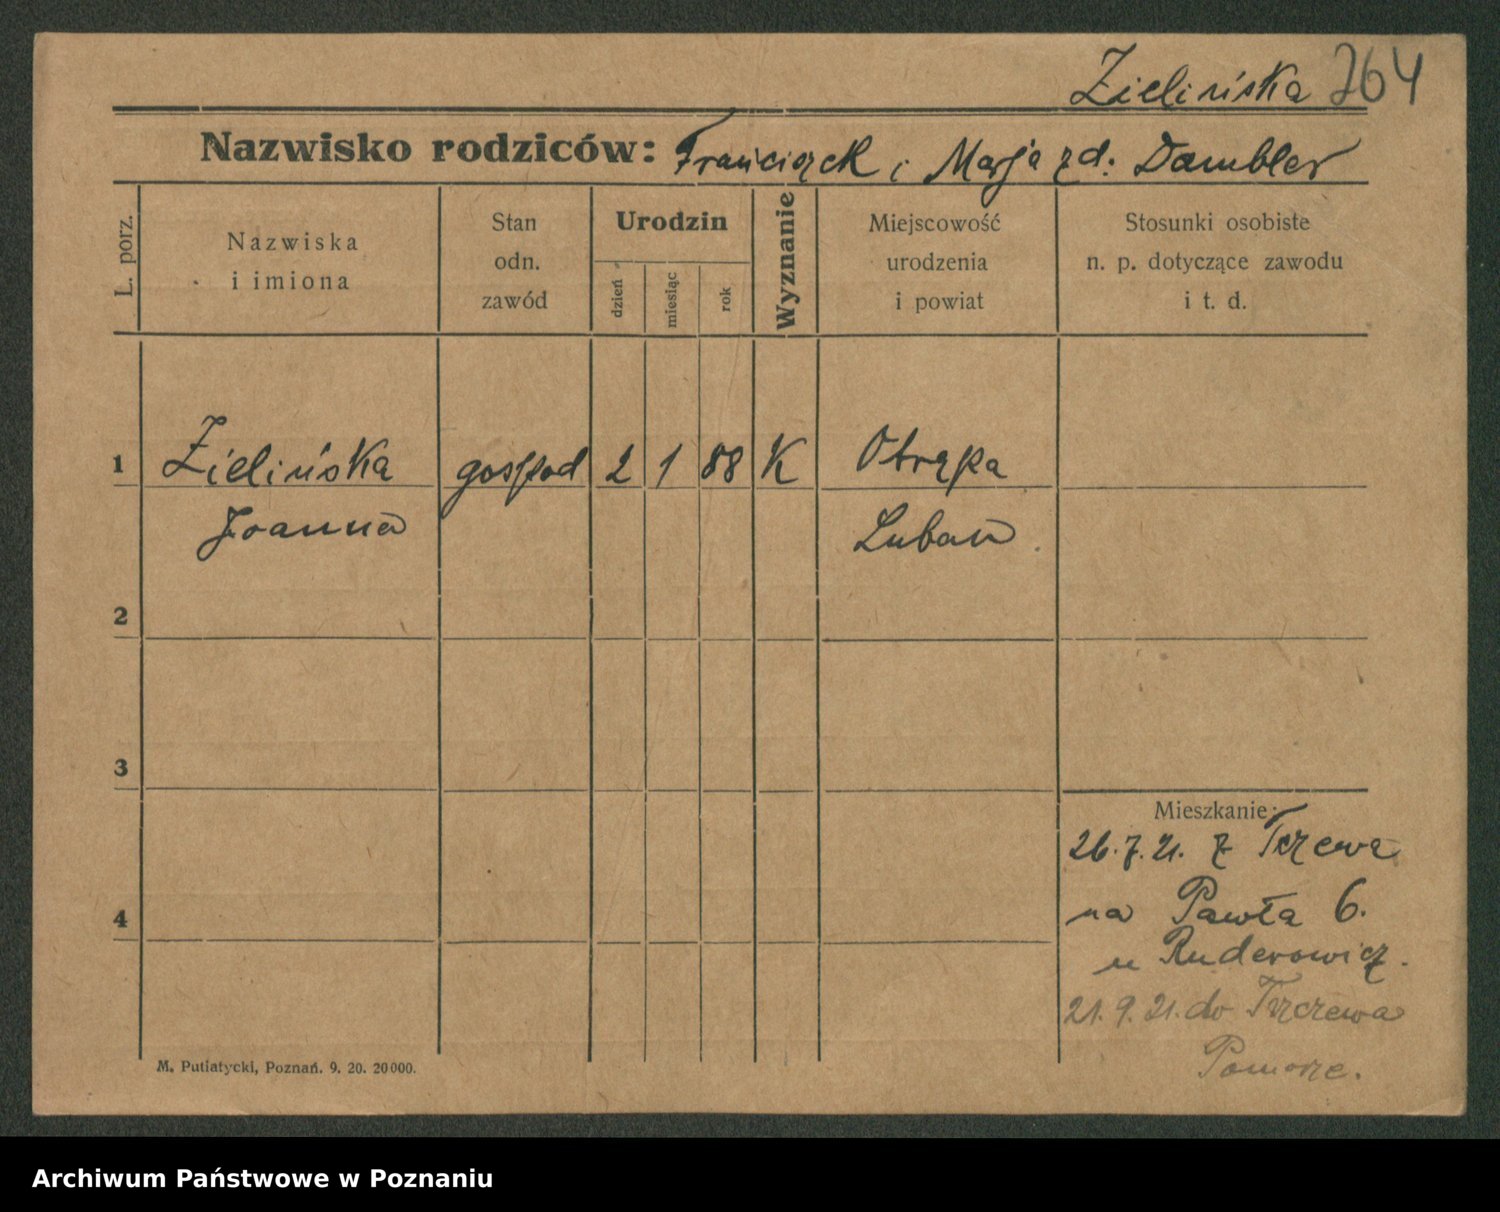 Zielińska 764
Nazwisko rodziców: Franciszek i Marja zd. Dambler
L. porz.
Nazwiska
i imiona
Stan
odn.
zawód
Urodzin
dzień
miesiąc
rok
Wyznanie
Miejscowość
urodzenia
i powiat
Stosunki osobiste
n. p. dotyczące zawodu
i t. d.
1 Zielińska gospod 2 1 88 K Otręka
Joanna Lubaw
2
3
Mieszkanie:
26.7.21. z Trzewa
na Pawła 6.
4
u Ruderowicz.
21.9.21. do Trzczewa
Pomorze.
M. Putiatycki, Poznań. 9. 20. 20000.
Archiwum Państwowe w Poznaniu